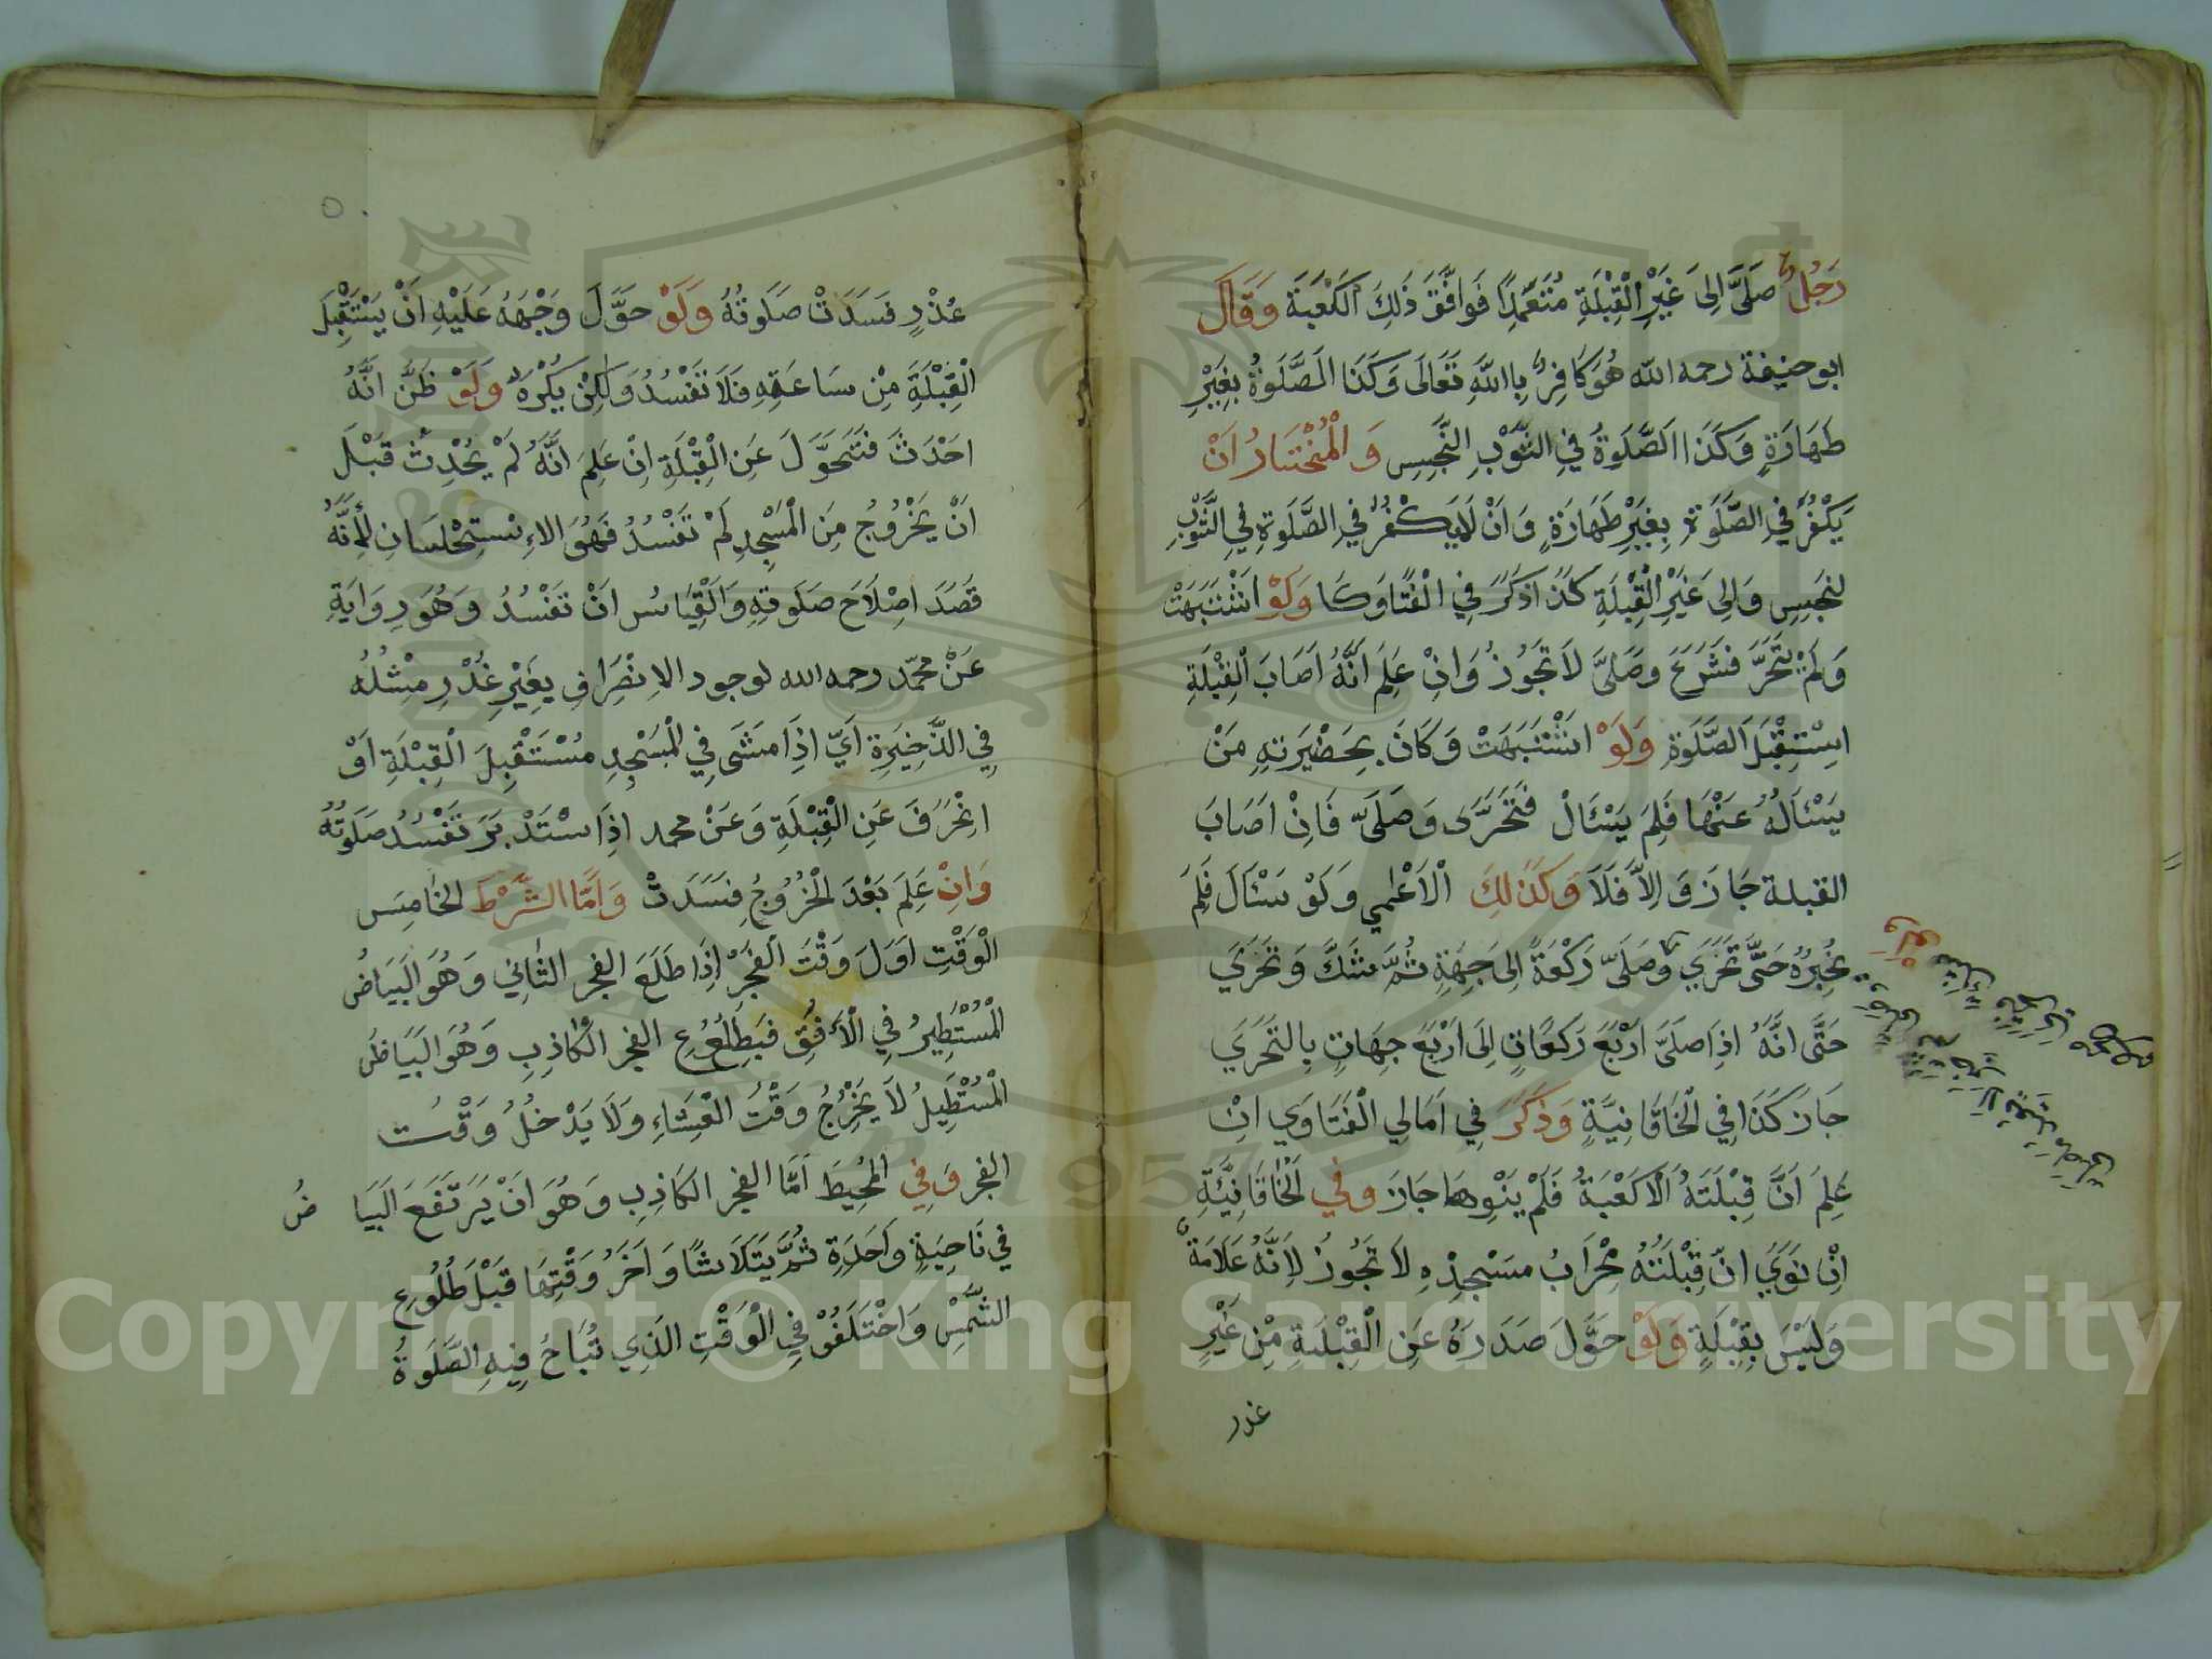 رَجُلٌ صَلَّى اِلىَ غَيْرِ الْقِبْلَةِ مُتَعَمِّدًا فَوَافَقَ ذَلِكَ الكَعْبَةَ وَقَالَ
ابو حنيفة رحمه الله هُوَ كَافِرٌ بِاللهِ تَعَالَى وَكَذَا الصَّلَوةُ بِغَيْرِ
طَهَارَةٍ وَكَذَا الصَّلَوةُ فِي الثَّوْبِ النَّجِسِ وَالْمُخْتَارُ اَنْ
يَكْفُرَ فِي الصَّلَوةِ بِغَيْرِ طَهَارَةٍ وَاَنْ لَايَكْفُرُ فِي الصَّلَوةِ فِي الثَّوْبِ
لنجَسِ وَالِى غَيْرِ الْقِبْلَةِ كَذَا ذَكَرَ فِي الْفَتَاوَى وَلَوْ اشْتَبَهَتْ
وَلَمْ يَتَحَرَّ فَشَرَعَ وَصَلَّى لاَ تَجُوزُ وَاِنْ عَلِمَ اَنَّهُ اَصَابَ الْقِبْلَةِ
اِسْتِقْبَلَ الصَّلَوةِ وَلَوْ اشْتَبَهَتْ وَكَانَ بِحَضْيرَتهِ مَنْ
يَسْئَالُهُ عَنْهَا فَلِمَ يَسْئَالْ فَتَحَرَّى وَصَلَّى فَاِنْ اَصَابَ
القبلة جَازَ وَاِلاَّ فَلاَ وَكَذَلِكَ اْلاَعْمٰي وَلَوْ سَئَالَ فَلِمَ
يُخْبِرُهُ حَتَّى تَحَرَّي وَصَلَّى رَكْعَةً اِلىَ جِهَةٍ ثُمَّ شَكَّ وَتَحَرَّي
حَتَّى اَنَّهُ اِذَا صَلَّى اَرْبَعَ رَكَعَاتٍ اِلَى اَرْبَعَ جِهَاتٍ بِالتَحَرِّي
جَازَ كَذَا فِي الْخَاقَانِيَّةِ وَذَكَرَ فِي اَمَالِي الْفَتَاوِي اِنْ
عَلِمَ اَنَّ قِبْلَتَهُ الْكَعْبَةُ فَلَمْ يَنْوِهَا جَازَ وفي الْخَاقَانِيَّةِ
اِنْ نَوَيَ انّ قِبْلَتُهُ مِحْرَابُ مَسْجِدْهِ لاَ تَجُوزُ لِاَنَّهُ عَلاَمَةٌ
وَلَيْسَ بِقِبْلَةٍ وَلَوْ حَوَّلَ صَدَرَهُ عَنِ الْقِبْلَةِ مِنْ غَيْرِ
عذر
عُذْرٍ فَسَدَتْ صَلَوتُهُ وَلَوْ حَوَّلَ وَجْهَهُ عَلَيْهِ اَنْ يَسْتَقْبِلَ
الْقِبْلَةَ مِنْ سَاعَتِهِ فَلاَ تَفْسُدُ وَلَكِنْ يَكْرَهُ وَلَوْ ظَنَّ انَّهُ
احَدْثَ فَتَحَوَّلَ عَنِ الْقِبْلَةِ اِنْ عَلِمَ اَنَّهُ لَمْ يُحْدِثْ قَبْلَ
اَنْ يَخْرُوجُ مِنَ الْمَسْجِدِ لَمْ تَفْسُدُ فَهُوَ الاِسْتِحْسَانِ لِاَنَّهُ
قَصَدَ اصِلاَحَ صَلَوتِهِ وَالْقِيَاسُ انْ تَفْسُدُ وَهُوَ رِوَايَةِ
عَنْ محمّد رحمه الله لوجود الاِنْصِرَافِ بِغَيْرِ عُذْرِ مِثْلُهُ
فِي الذَّخِيَرِةِ اَيّ اِذَا مَشَى فِي الْمَسْجِدِ مُسْتَقْبِلَ الْقِبْلَةِ اَوْ
انْحَرَفَ عَنِ الْقِبْلَةِ وَعَنْ محمد اِذَا سْتَدْبَرَ تَفْسُدُ صَلَوتُهُ
وَانْ عَلِمَ بَعْدَ الْخُرُوجُ فِسَدَتْ وَاَمَّا الشَّرْطَ الخَامِسَ
الْوَقْتِ اَوَلَ وَقْتَ الْفَجْرَ اِذَا طَلَعَ الفجر الثاني وَهُوَ الْبَيَاضُ
الْمُسْتَطِيرُ فِي الْاَفُقِ فَبَطِلُعُوعِ الفجر الْكَاذِبِ وَهُوَ الْبَيَاضُ
الْمُسْتَطِيلُ لاَ يَخْرُجُ وَقْتُ الْعِشَاءِ وَلاَ يَدْخُلُ وَقْتُ
الفجر وَفِي الْمُحِيطَ اَمَّا الفجر الكَاذِبِ وَهُوَ انَ يَرْتَفَعَ البَيَا ضُ
فِي نَاحِيَةٍ وَاحَدَةٍ ثُمَّ يَتَلاَشَا وَاَخَرُ وَقْتِهَا قَبْلَ طُلُوعِ
الشَّمْسِ وَاخْتَلَفُوْ فِي الْوَقْتِ الذِي تُبَاحُ فِيهِ الصَّلَوةُ